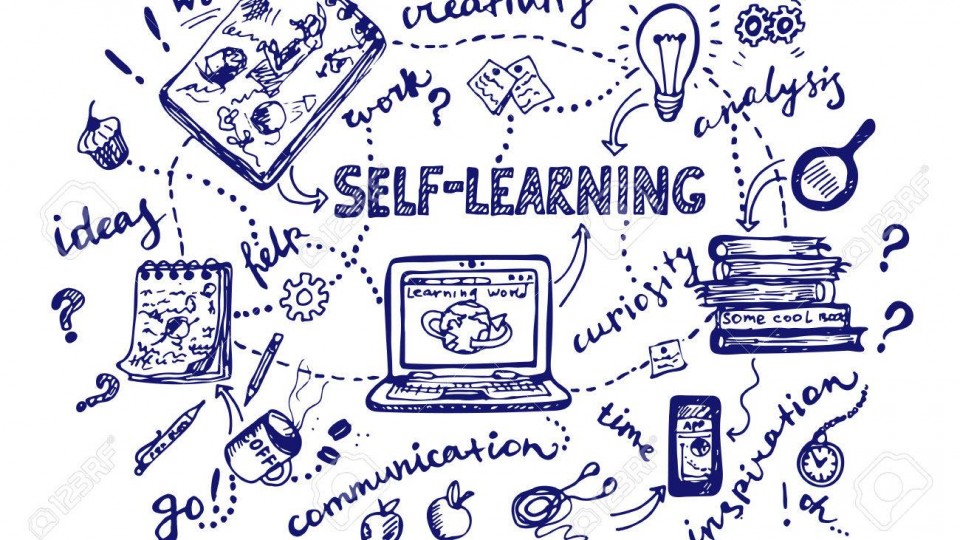 creativity
work?
analysis
SELF-LEARNING
ideas
help
Learning world
curiosity
SOME COOL BOOK
?
?
?
?
APP
time
OFF
communication
inspiration
go!
!
oh...
123RF